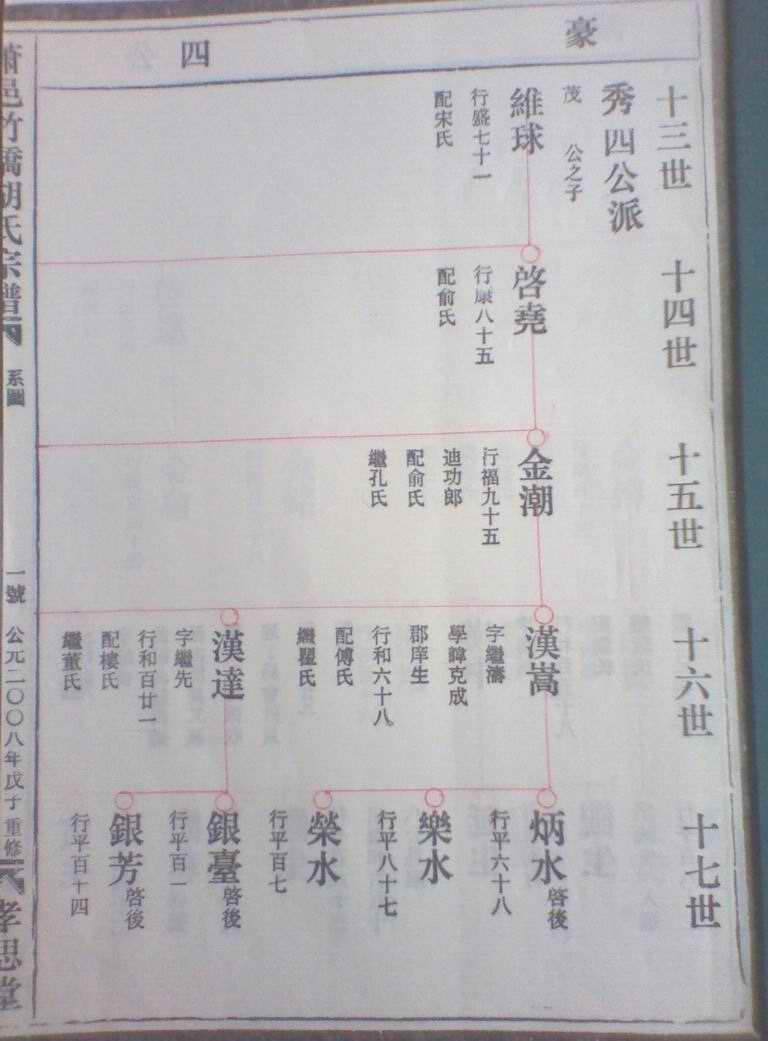 豪
四
十三世
秀四公派
茂 公之子
維球
行盛七十一
配宋氏
十四世
啓堯
行康八十五
配俞氏
十五世
金潮
行福九十五
迪功郎
配俞氏
繼孔氏
十六世
漢嵩
字繼濤
學諱克成
郡庠生
行和六十八
配傅氏
繼瞿氏
漢達
字繼先
行和百廿一
配樓氏
繼董氏
十七世
炳水 啓後
行平六十八
樂水
行平八十七
榮水
行平百七
銀臺 啓後
行平百一
銀芳 啓後
行平百十四
蕭邑竹橋胡氏宗譜
系圖
一號
公元二〇〇八年戊子重修
孝思堂